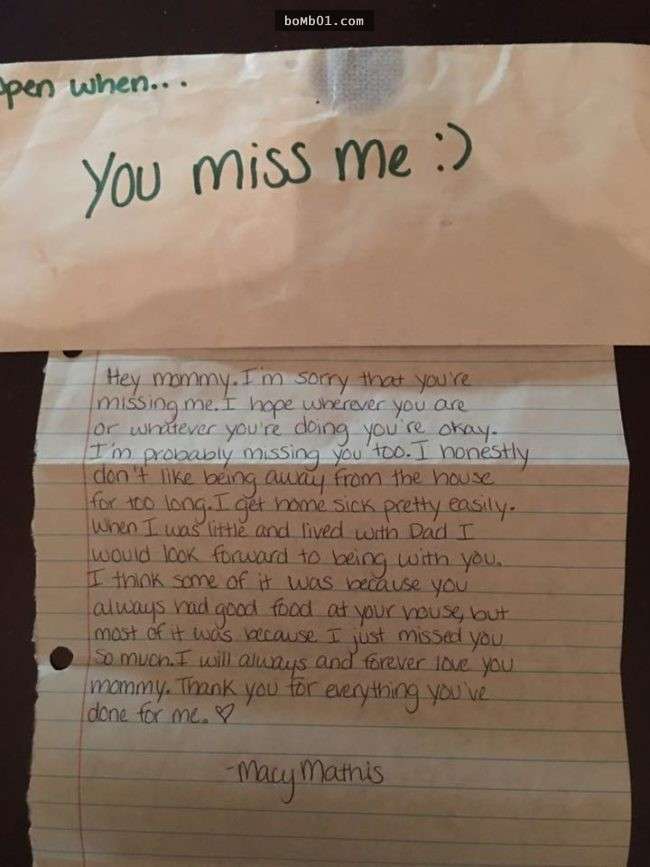 boMb01.com
pen when...
you miss me :)
Hey mommy. I'm sorry that you're
missing me. I hope wherever you are
or whatever you're doing you're okay.
I'm probably missing you too. I honestly
don't like being away from the house
for too long. I get home sick pretty easily.
When I was little and lived with Dad I
would look forward to being with you.
I think some of it was because you
always had good food at your house, but
most of it was because I just missed you
so much. I will always and forever love you
mommy. Thank you for everything you've
done for me. ♡
-Macy Mathis